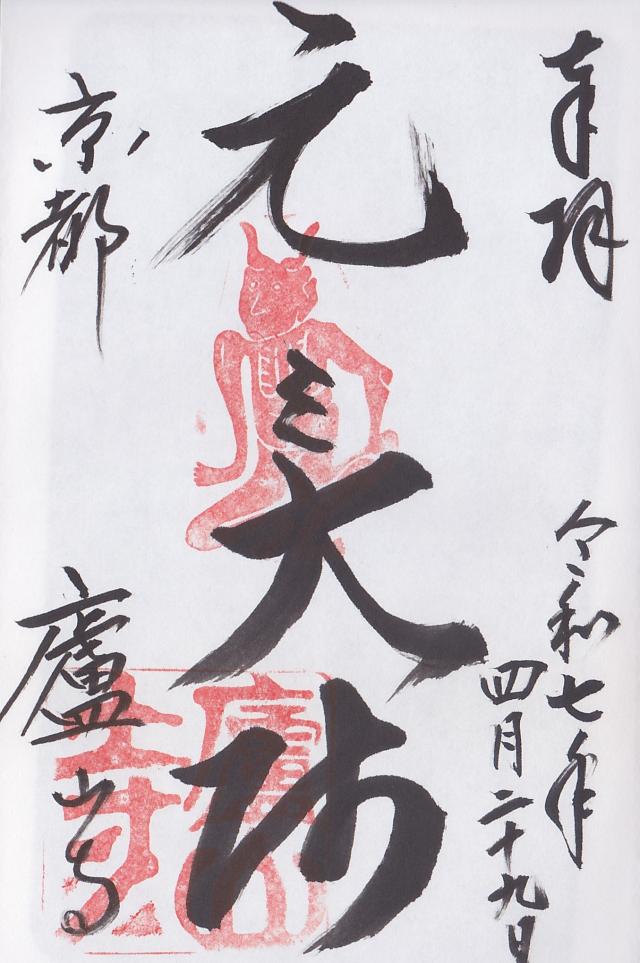 奉拝
令和七年
四月二十九日
元三大師
京都
廬山寺
廬山寺